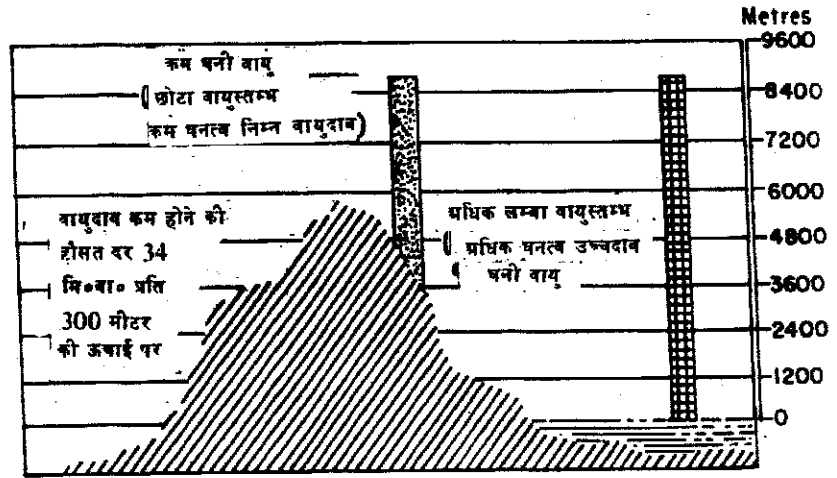 Metres
9600
8400
7200
6000
4800
3600
2400
1200
0
कम घनी वायु
( छोटा वायुस्तम्भ
कम घनत्व निम्न वायुदाब)
वायुदाब कम होने की
औसत दर 34
मि॰बा॰ प्रति
300 मीटर
की ऊंचाई पर
अधिक लम्बा वायुस्तम्भ
( अधिक घनत्व उच्चदाब
घनी वायु